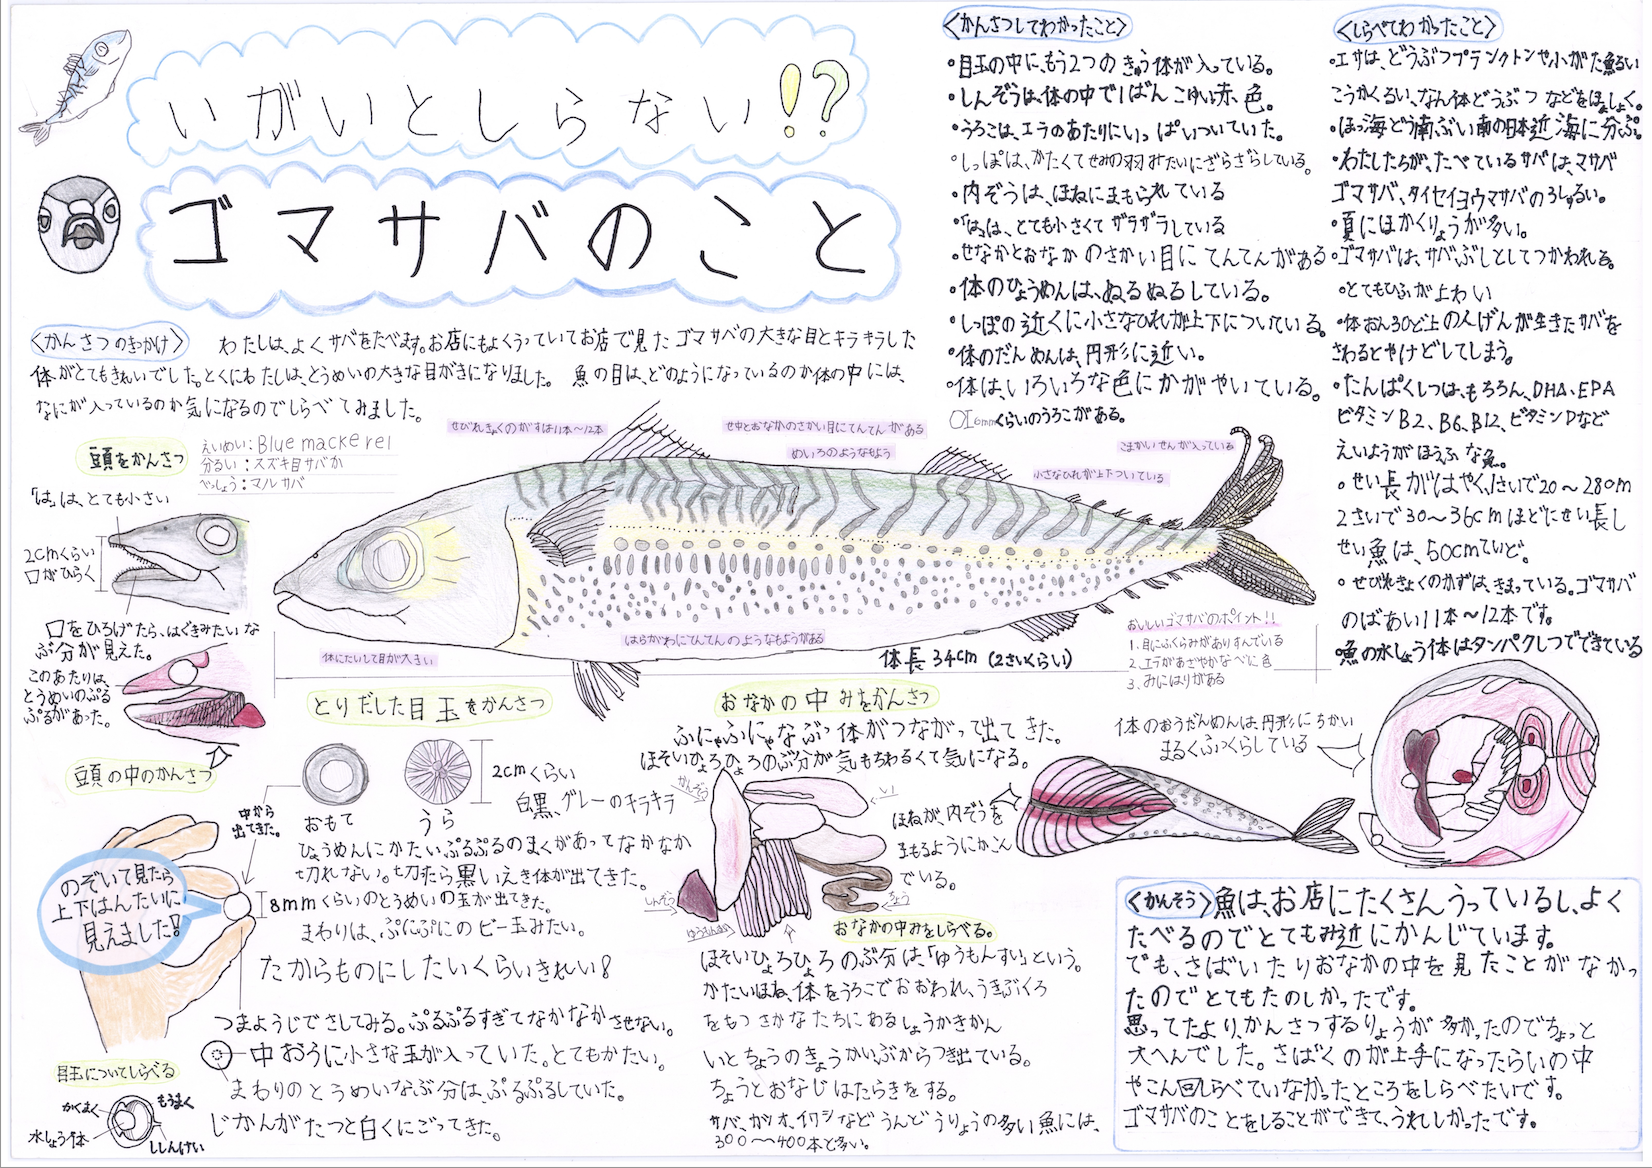 いがいとしらない!?
ゴマサバのこと
<かんさつのきっかけ>
わたしは、よくサバをたべます。お店にもよくうっていてお店で見たゴマサバの大きな目とキラキラした
体がとてもきれいでした。とくにわたしは、とうめいの大きな目がきになりました。魚の目は、どのようになっているのか体の中には、
なにが入っているのか気になるのでしらべてみました。
頭をかんさつ
えいめい:Blue mackerel
分るい:スズキ目サバか
べっしょう:マルサバ
「は」は、とても小さい
2cmくらい
口がひらく
口をひろげたら、はぐきみたいな
ぶ分が見えた。
このあたりは、
とうめいのぷる
ぷるがあった。
頭の中のかんさつ
せびれきょくのかずは11本~12本
せ中とおなかのさかい目にてんてんがある
めいろのようなもよう
こまかいせんが入っている
小さなひれが上下ついている
はらがわにてんてんのようなもようがある
体にたいして目が大きい
体長34cm(2さいくらい)
おいしいゴマサバのポイント!!
1.目にふくらみがありすんでいる
2.エラがあざやかなべに色
3.みにはりがある
とりだした目玉をかんさつ
中から
出てきた。
おもて
うら
2cmくらい
白黒、グレーのキラキラ
ひょうめんにかたいぷるぷるのまくがあってなかなか
切れない。切ったら黒いえき体が出てきた。
8mmくらいのとうめいの玉が出てきた。
まわりは、ぷにぷにのビー玉みたい。
たからものにしたいくらいきれい!
のぞいて見たら
上下はんたいに
見えました!
つまようじでさしてみる。ぷるぷるすぎてなかなかささせない。
中おうに小さな玉が入っていた。とてもかたい。
まわりのとうめいなぶ分は、ぷるぷるしていた。
じかんがたつと白くにごってきた。
目玉についてしらべる
かくまく
もうまく
水しょう体
ししんけい
おなかの中みをかんさつ
ふにゃふにゃなぶっ体がつながって出てきた。
ほそいひょろひょろのぶ分が気もちわるくて気になる。
かんぞう
い
しんぞう
ゆうもんすい
ちょう
ほねが、内ぞうを
まもるようにかこん
でいる。
体のおうだんめんは、円形にちかい
まるくふっくらしている
おなかの中みをしらべる。
ほそいひょろひょろのぶ分は、「ゆうもんすい」という。
かたいほね、体をうろこでおおわれ、うきぶくろ
をもつさかなたちにあるしょうかきかん
いとちょうのきょうかいぶからつき出ている。
ちょうとおなじはたらきをする。
サバ、カツオ、イワシなどうんどうりょうの多い魚には、
300~400本と多い。
<かんさつしてわかったこと>
・目玉の中に、もう2つのきゅう体が入っている。
・しんぞうは、体の中で1ばんこゆい赤、色。
・うろこは、エラのあたりにいっぱいついていた。
・しっぽは、かたくてせみの羽みたいにざらざらしている。
・内ぞうは、ほねにまもられている
・「は」は、とても小さくてザラザラしている
・せなかとおなかのさかい目にてんてんがある
・体のひょうめんは、ぬるぬるしている。
・しっぽの近くに小さなひれが上下についている。
・体のだんめんは、円形に近い。
・体は、いろいろな色にかがやいている。
6mmくらいのうろこがある。
<しらべてわかったこと>
・エサは、どうぶつプランクトンや小がた魚るい
こうかくるい、なん体どうぶつなどをほしょく。
・ほっ海どう南ぶい南の日本近海に分ぷ。
・わたしたちが、たべているサバは、マサバ
ゴマサバ、タイセイヨウマサバの3しゅるい。
・夏にほかくりょうが多い。
・ゴマサバは、サバぶしとしてつかわれる。
・とてもひふがよわい
・体おん30ど上の人げんが生きたサバを
さわるとやけどしてしまう。
・たんぱくしつは、もちろん、DHA、EPA
ビタミンB2、B6、B12、ビタミンDなど
えいようがほうふな魚。
・せい長がはやく、1さいで20~28cm
2さいで30~36cmほどにせい長し
せい魚は、50cmていど。
・せびれきょくのかずは、きまっている。ゴマサバ
のばあい11本~12本です。
・魚の水しょう体はタンパクしつでできている
<かんそう>魚は、お店にたくさんうっているし、よく
たべるのでとてもみ近にかんじています。
でも、さばいたりおなかの中を見たことがなかっ
たのでとてもたのしかったです。
思ってたより、かんさつするりょうが多かったのでちょっと
大へんでした。さばくのが上手になったらいの中
やこん回しらべていなかったところをしらべたいです。
ゴマサバのことをしることができて、うれしかったです。